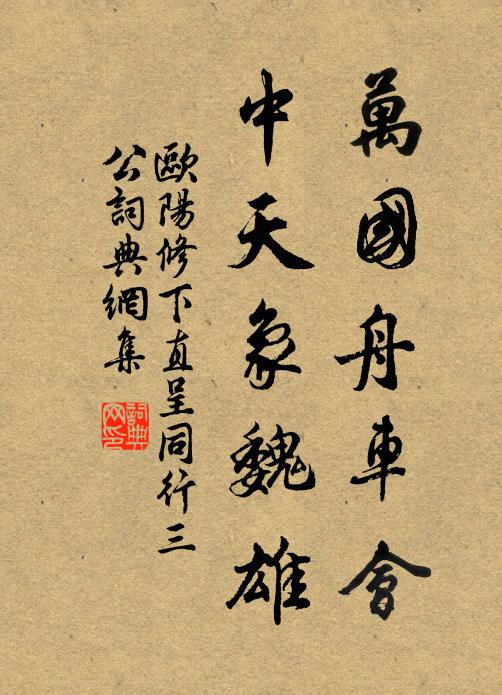 萬國舟車會
中天象魏雄
歐陽修下直呈同行三
公詞典網集
詞典
网印